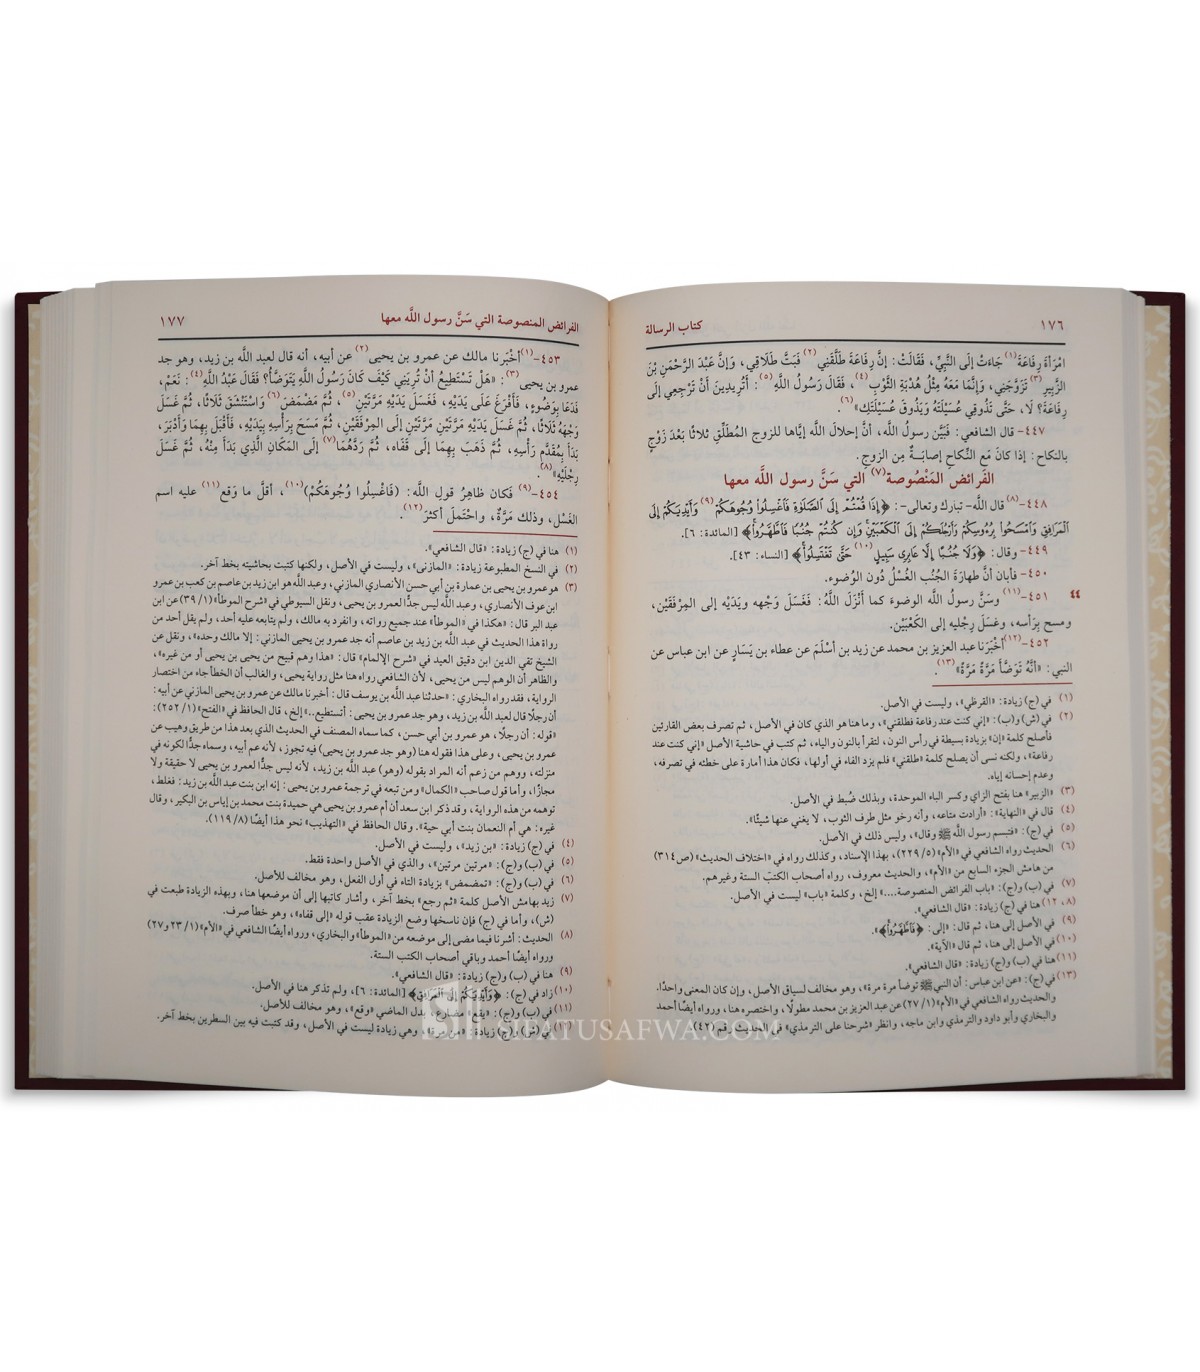 ١٧٦
كتاب الرسالة
امْرَأةَ رِفَاعَةَ(١) جَاءَتْ إلَى النَّبِيِّ، فَقَالَتْ: إنَّ رِفَاعَةَ طَلَّقَنِي(٢) فَبَتَّ طَلَاقِي، وَإنَّ عَبْدَ الرَّحْمَنِ بْنَ
الزَّبِيرِ(٣) تَزَوَّجَنِي، وَإنَّمَا مَعَهُ مِثْلُ هُدْبَةِ الثَّوْبِ(٤)، فَقَالَ رَسُولُ اللَّهِ(٥): أتُرِيدِينَ أنْ تَرْجَعِي إلَى
رِفَاعَةَ؟ لَا، حَتَّى تَذُوقِي عُسَيْلَتَهُ وَيَذُوقَ عُسَيْلَتَكِ»(٦).
٤٤٧- قال الشافعي: فَبَيَّن رسولُ اللَّه، أن إحلالَ اللَّه إيَّاها للزوج المُطَلِّقِ ثلاثًا بَعْدَ زَوْجٍ
بالنكاح: إذا كانَ مَع النِّكاحِ إصابَةٌ مِن الزوجِ.
الفَرائض المَنْصُوصة(٧) التي سَنَّ رسول اللَّه معها
٤٤٨-(٨) قال اللَّه- تبارك وتعالى-: ﴿إِذَا قُمْتُمْ إِلَى الصَّلَوٰةِ فَاغْسِلُوا وُجُوهَكُمْ(٩) وَأَيْدِيَكُمْ إِلَى
الْمَرَافِقِ وَامْسَحُوا بِرُءُوسِكُمْ وَأَرْجُلَكُمْ إِلَى الْكَعْبَيْنِ وَإِن كُنتُمْ جُنُبًا فَاطَّهَّرُوا﴾ [المائدة: ٦].
٤٤٩- وقال: ﴿وَلَا جُنُبًا إِلَّا عَابِرِي سَبِيلٍ(١٠) حَتَّىٰ تَغْتَسِلُوا﴾ [النساء: ٤٣].
٤٥٠- فأبان أنَّ طهارةَ الجُنُبِ الغُسْلُ دُون الوُضوءِ.
٤٥١-(١١) وسَنَّ رسول اللَّه الوضوءَ كما أنْزَلَ اللَّهُ: فَغَسَلَ وَجْهه ويَدَيْه إلى المِرْفَقَيْن،
ومسح بِرَأسه، وغسَلَ رِجْليه إلى الكَعْبَيْن.
٤٥٢-(١٢) أخْبَرَنا عبد العزيز بن محمد عن زيد بن أسْلَمَ عن عطاء بن يَسَارٍ عن ابن عباس عن
النبي: «أنَّهُ تَوَضَّأ مَرَّةً مَرَّةً»(١٣).
(١) في (ج) زيادة: «القرظي»، وليست في الأصل.
(٢) في (ش) و(ب): «إني كنت عند رفاعة فطلقني»، وما هنا هو الذي كان في الأصل، ثم تصرف بعض القارئين
فأصلح كلمة «إن» بزيادة بسيطة في رأس النون، لتقرأ بالنون والياء، ثم كتب في حاشية الأصل «إني كنت عند
رفاعة»، ولكنه نسى أن يصلح كلمة «طلقني» فلم يزد الفاء في أولها، فكان هذا أمارة على خطئه في تصرفه،
وعدم إحسانه إياه.
(٣) «الزبير» هنا بفتح الزاي وكسر الباء الموحدة، وبذلك ضُبط في الأصل.
(٤) قال في «النهاية»: «أرادت متاعه، وأنه رخو مثل طرف الثوب، لا يغني عنها شيئًا».
(٥) في (ج): «فتبسم رسول اللَّه ﷺ وقال»، وليس ذلك في الأصل.
(٦) الحديث رواه الشافعي في «الأم» (٥/ ٢٢٩)، بهذا الإسناد، وكذلك رواه في «اختلاف الحديث» (ص٣١٤)
من هامش الجزء السابع من «الأم»، والحديث معروف، رواه أصحاب الكتب الستة وغيرهم.
(٧) في (ب) و(ج): «باب الفرائض المنصوصة....» إلخ، وكلمة «باب» ليست في الأصل.
(٨، ١٢) هنا في (ج) زيادة: «قال الشافعي».
(٩) في الأصل إلى هنا، ثم قال: «إلى: ﴿فَاطَّهَّرُوا﴾».
(١٠) في الأصل إلى هنا، ثم قال «الآية».
(١١) هنا في (ب) و(ج) زيادة: «قال الشافعي».
(١٣) في (ج): «عن ابن عباس: أن النبي ﷺ توضأ مرة مرة»، وهو مخالف لسياق الأصل، وإن كان المعنى واحدًا.
والحديث رواه الشافعي في «الأم» (١/ ٢٧) عن عبد العزيز بن محمد مطولًا، واختصره هنا، ورواه أيضًا أحمد
والبخاري وأبو داود والترمذي وابن ماجه، وانظر «شرحنا على الترمذي» في الحديث رقم (٤٢)
٤٤
الفرائض المنصوصة التي سَنَّ رسول اللَّه معها
١٧٧
٤٥٣-(١) أخْبَرنا مالك عن عمرو بن يحيى(٢) عن أبيه، أنه قال لعبد اللَّه بن زيد، وهو جد
عمرو بن يحيى(٣): «هَلْ تَسْتَطِيعُ أنْ تُرِيَنِي كَيْفَ كَانَ رَسُولُ اللَّهِ يَتَوَضَّأ؟ فَقَالَ عَبْدُ اللَّهِ(٤): نَعَمْ،
فَدَعَا بِوَضُوءٍ، فَأفْرَغَ عَلَى يَدَيْهِ، فَغَسَلَ يَدَيْهِ مَرَّتَيْنِ(٥)، ثُمَّ مَضْمَضَ(٦) وَاسْتَنْشَقَ ثَلَاثًا، ثُمَّ غَسَلَ
وَجْهَهُ ثَلَاثًا، ثُمَّ غَسَلَ يَدَيْهِ مَرَّتَيْنِ مَرَّتَيْنِ إلَى المِرْفَقَيْنِ، ثُمَّ مَسَحَ بِرَأْسِهِ بِيَدَيْهِ، فَأقْبَلَ بِهِمَا وَأدْبَرَ،
بَدَأَ بِمُقَدَّمِ رَأْسِهِ، ثُمَّ ذَهَبَ بِهِمَا إلَى قَفَاه، ثُمَّ رَدَّهُمَا(٧) إلَى المَكَانِ الَّذِي بَدَأَ مِنْهُ، ثُمَّ غَسَلَ
رِجْلَيْهِ»(٨).
٤٥٤-(٩) فَكان ظاهِرُ قولِ اللَّه: (فَاغْسِلُوا وُجُوهَكُمْ)(١٠)، أقلَّ ما وَقع(١١) عليه اسم
الغَسْل، وذلك مَرَّةٌ، واحْتَمَل أكثرَ(١٢).
(١) هنا في (ج) زيادة: «قال الشافعي».
(٢) في النسخ المطبوعة زيادة: «المازني»، وليست في الأصل، ولكنها كتبت بحاشيته بخط آخر.
(٣) هو عمرو بن يحيى بن عمارة بن أبي حسن الأنصاري المازني، وعبد اللَّه هو ابن زيد بن عاصم بن كعب بن عمرو
ابن عوف الأنصاري، وعبد اللَّه ليس جدُّ العمرو بن يحيى، ونقل السيوطي في «شرح الموطأ» (١/ ٣٩) عن ابن
عبد البر قال: «هكذا في «الموطأ» عند جميع رواته، وانفرد به مالك، ولم يتابعه عليه أحد، ولم يقل أحد من
رواة هذا الحديث في عبد اللَّه بن زيد بن عاصم أنه جد عمرو بن يحيى المازني: إلا مالك وحده»، ونقل عن
الشيخ تقي الدين ابن دقيق العيد في «شرح الإلمام» قال: «هذا وهم قبيح من يحيى بن يحيى أو من غيره»،
والظاهر أن الوهم ليس من يحيى، لأن الشافعي رواه هنا مثل رواية يحيى، والغالب أن الخطأ جاء من اختصار
الرواية، فقد رواه البخاري: «حدثنا عبد اللَّه بن يوسف قال: أخبرنا مالك عن عمرو بن يحيى المازني عن أبيه:
أن رجلًا قال لعبد اللَّه بن زيد، وهو جد عمرو بن يحيى: أتستطيع..» إلخ، قال الحافظ في «الفتح» (١/ ٢٥٢):
«قوله: أن رجلًا، هو عمرو بن أبي حسن، كما سماه المصنف في الحديث الذي بعد هذا من طريق وهيب عن
عمرو بن يحيى، وعلى هذا فقوله هنا (وهو جد عمرو بن يحيى) فيه تجوز، لأنه عم أبيه، وسماه جدًّا لكونه في
منزلته، ووهم من زعم أنه المراد بقوله (وهو) عبد اللَّه بن زيد، لأنه ليس جدًّا لعمرو بن يحيى لا حقيقة ولا
مجازًا، وأما قول صاحب «الكمال» ومن تبعه في ترجمة عمرو بن يحيى: إنه ابن بنت عبد اللَّه بن زيد: فغلط،
توهمه من هذه الرواية، وقد ذكر ابن سعد أن أم عمرو بن يحيى هي حميدة بنت محمد بن إياس بن البكير، وقال
غيره: هي أم النعمان بنت أبي حية». وقال الحافظ في «التهذيب» نحو هذا أيضًا (٨/ ١١٩).
(٤) في (ج) زيادة: «بن زيد»، وليست في الأصل.
(٥) في (ب) و(ج): «مرتين مرتين»، والذي في الأصل واحدة فقط.
(٦) في (ب) و(ج): «تمضمض» بزيادة التاء في أول الفعل، وهو مخالف للأصل.
(٧) زيد بهامش الأصل كلمة «ثم رجع» بخط آخر، وأشار كاتبها إلى أن موضعها هنا، وبهذه الزيادة طبعت في
(ش)، وأما في (ج) فإن ناسخها وضع الزيادة عقب قوله «إلى قفاه»، وهو خطأ صرف.
(٨) الحديث: أشرنا فيما مضى إلى موضعه من «الموطأ» والبخاري، ورواه أيضًا الشافعي في «الأم» (١/ ٢٣ و٢٧)
ورواه أيضًا أحمد وباقي أصحاب الكتب الستة.
(٩) هنا في (ب) و(ج) زيادة: «قال الشافعي».
(١٠) زاد في (ج): ﴿وَأَيْدِيَكُمْ إِلَى الْمَرَافِقِ﴾ [المائدة: ٦]، ولم تذكر هنا في الأصل.
(١١) في (ب) و(ج): «يقع» مضارع، بدل الماضي «وقع»، وهو مخالف للأصل.
(١٢) في (ش) و(ج) زيادة: «من مرة»، وهي زيادة ليست في الأصل، وقد كتبت فيه بين السطرين بخط آخر.
SIFATUSAFWA.COM